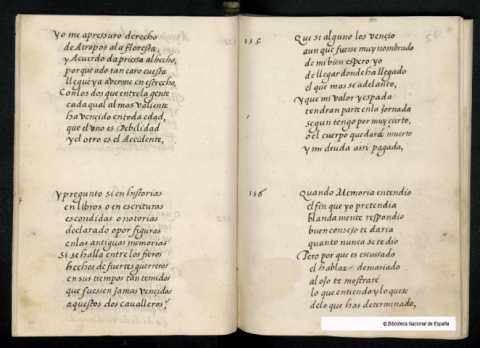 Yo me apressuro derecho
de Atropos ala floresta,
y Acuerdo da priessa al hecho,
porque ado tan caro cuesta
llegue ya averme en estrecho,
Con los dos que entre la gente
cada qual al mas valiente
ha vencido en toda edad,
que el uno es Debilidad
y el otro es el Accidente,
Y pregunto si en historias
en libros o en escrituras
escondidas o notorias
declarado o por figuras
en las antiguas memorias
Si se halla entre los fieros
hechos de fuertes guerreros
en sus tiempos tan temidos
que fuessen jamas vencidos
aquestos dos cavalleros?
155
Que si alguno los vencio
aun que fuesse muy nombrado
de mi bien espero yo
de llegar donde ha llegado
el que mas se adelanto,
Y que mi valor y espada
tendran parte en la jornada
segun tengo por muy cierto,
o el cuerpo quedara muerto
y mi deuda assi pagada,
156
Quando Memoria entendio
el fin que yo pretendia
blandamente respondio
buen consejo te daria
quanto nunca se te dio
Pero por que es escusado
el hablar demasiado
al ojo te mostraré
lo que entiendo y lo que se
delo que has determinado,
© Biblioteca Nacional de España